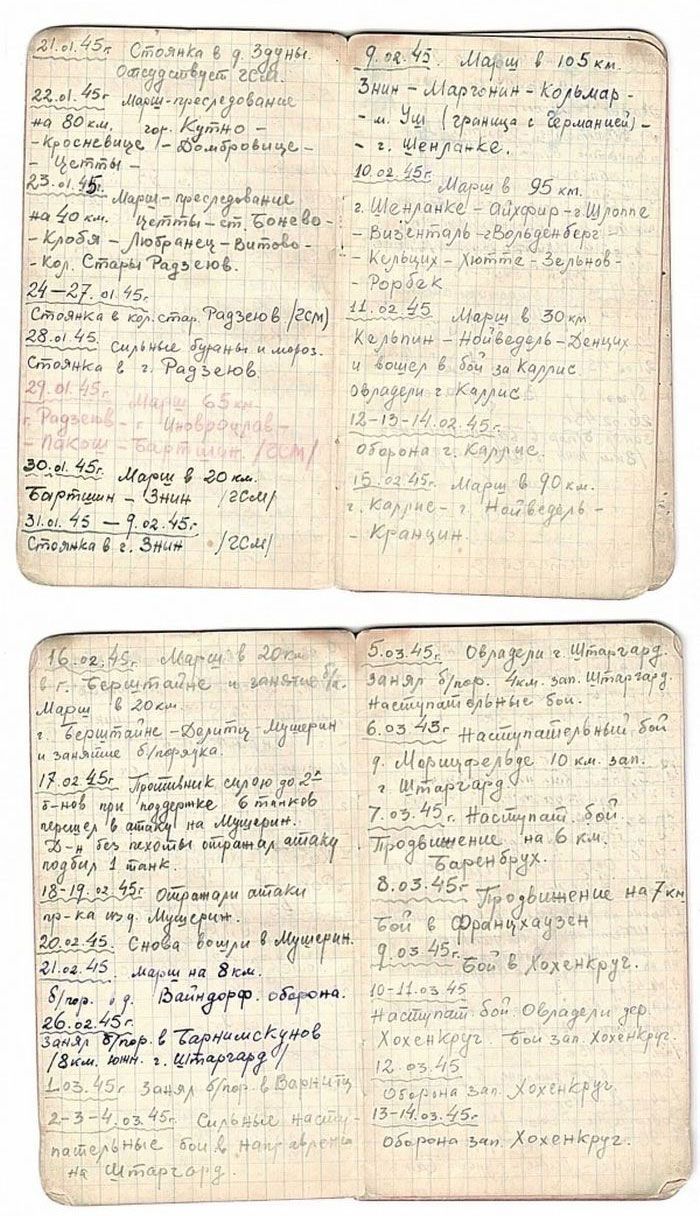 21.01.45г. Стоянка в д. Здуны.
Отсудствует гсм.
22.01.45г Марш-преследование
на 80 км. гор. Кутно -
- Кросневице - Домбровице -
- Цетты -
23.01.45г. Марш-преследование
на 40 км. Цетты - ст. Бонево -
- Клобя - Любранец - Витово -
- Кол. Стары Радзеюв.
24-27.01.45г.
Стоянка в кол. стар. Радзеюв /гсм/
28.01.45. Сильные бураны и мороз.
Стоянка в г. Радзеюв.
29.01.45г. Марш 65 км.
г. Радзеюв - г. Иновроцлав -
- Пакош - Бартшин. /гсм/
30.01.45г. Марш в 20 км.
Бартшин - Знин /гсм/
31.01.45 - 9.02.45г
Стоянка в г. Знин /гсм/
9.02.45. Марш в 105 км.
Знин - Маргонин - Кольмар -
- м. Уш (граница с Германией) -
- г. Шенланке.
10.02.45г.
Марш в 95 км.
г. Шенланке - Айхфир - г Шлоппе
- Визенталь - г Вольденберг -
- Кельцих - Хютте - Зельнов -
- Рорбек
11.02.45 Марш в 30 км
Кельпин - Нойведель - Денцих
и вошел в бой за Каллис
овладели г Каллис.
12-13-14.02.45г.
Оборона г. Каллис.
15.02.45г. Марш в 90 км.
г. Каллис - г. Нойведель -
- Кранцин.
16.02.45г. Марш в 20 км
в г. Берштайне и занятие б/п.
Марш в 20 км.
г. Берштайне - Делитц - Мушерин
и занятие б/порядка.
17.02.45г Противник силою до 2х
б-нов при поддержке 6 танков
перешел в атаку на Мушерин.
Д-н без пехоты отражал атаку
подбил 1 танк.
18-19.02.45г Отражали атаки
пр-ка из д. Мушерин.
20.02.45. Снова вошли в Мушерин.
21.02.45. Марш на 8 км.
б/пор. о д. Вайндорф. оборона.
26.02.45г.
Занял б/пор. в Барнимскунов
/8км. южн. г. Штаргард/
1.03.45г Занял б/пор. в Варнитц
2-3-4.03.45г. Сильные насту-
пательные бои в направлении
на Штаргард.
5.03.45г. Овладели г. Штаргард.
занял б/пор. 4км. зап. Штаргард.
Наступательные бои.
6.03.45г Наступательный бой
д. Морицфельде 10 км. зап.
г. Штаргард.
7.03.45г. Наступат. бой.
Продвижение на 6 км.
Баренбрух.
8.03.45г Продвижение на 7 км
Бой в Францхаузен
9.03.45г. Бой в Хохенкруг.
10-11.03.45
Наступат. бой. Овладели дер.
Хохенкруг. Бои зап. Хохенкруг.
12.03.45
Оборона зап. Хохенкруг
13-14.03.45г
Оборона зап. Хохенкруг.